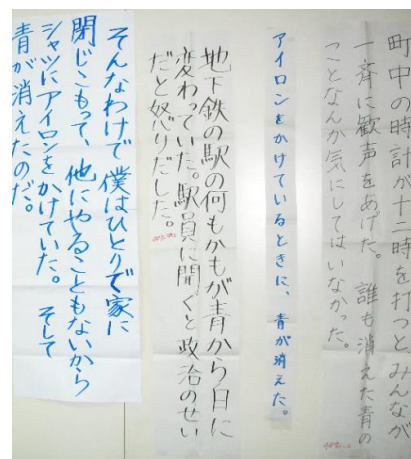 町中の時計が十二時を打つと、みんなが
一斉に歓声をあげた。 誰も消えた青の
ことなんか気にしてはいなかった。
アイロンをかけているときに、青が消えた。
地下鉄の駅の何もかもが青から白に
変わっていた。駅員に聞くと政治のせい
だと怒りだした。
そんなわけで僕はひとりで家に
閉じこもって、他にやることもないから
シャツにアイロンをかけていた。 そして
青が消えたのだ。